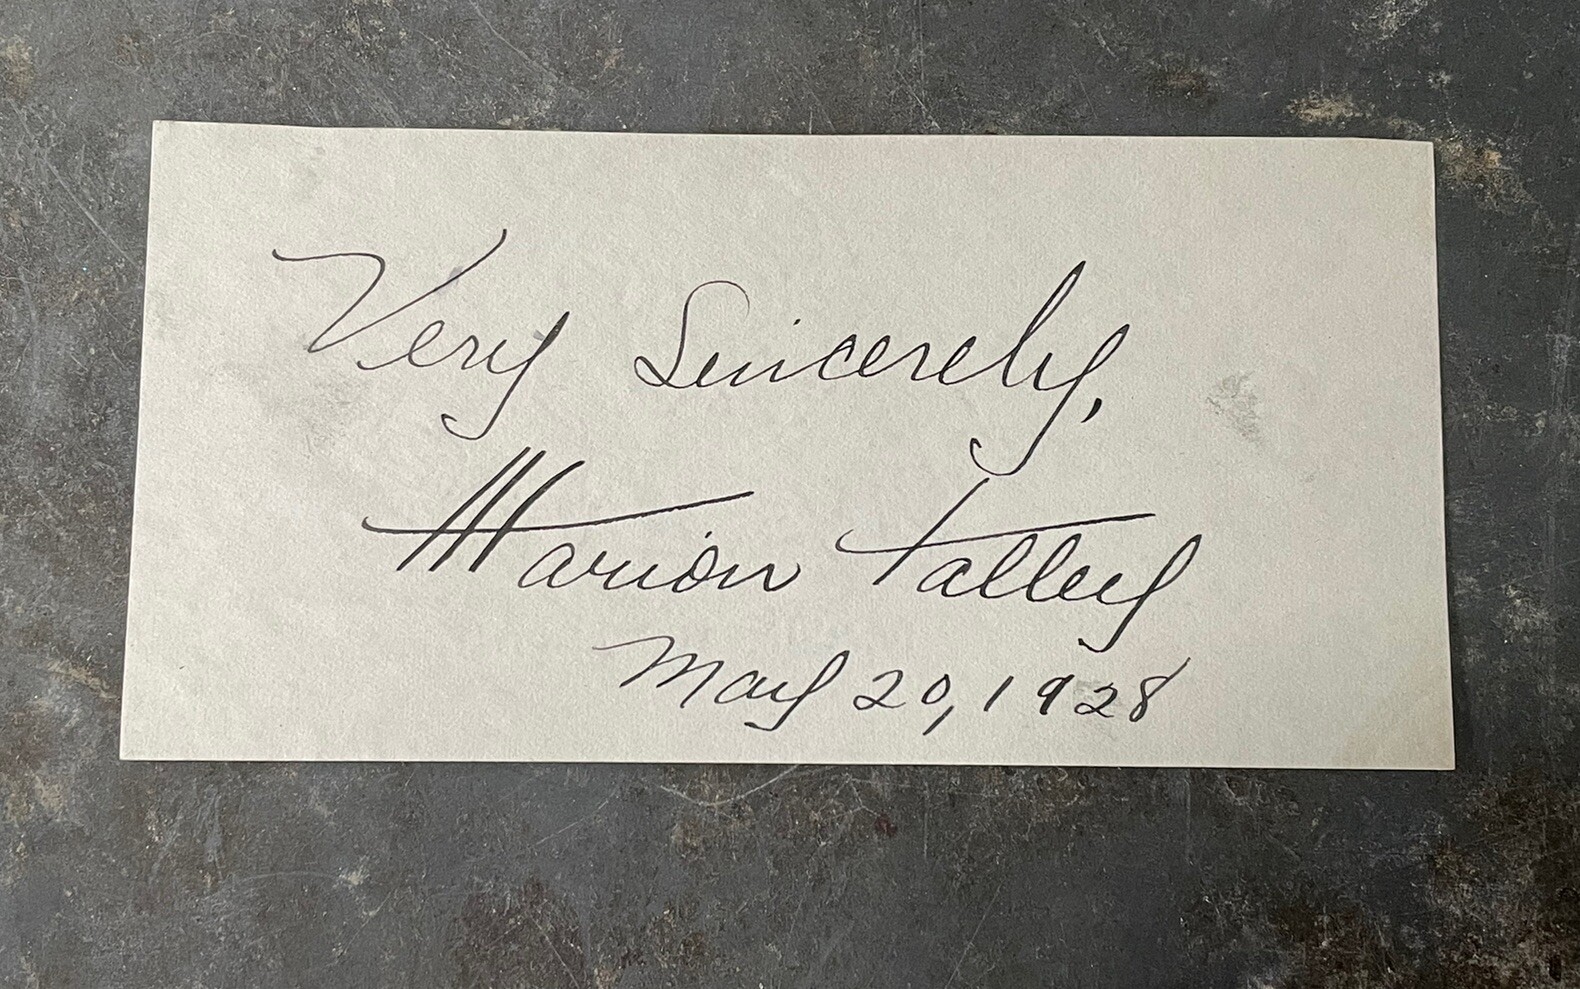 Very Sincerely,
Marion Talley
May 20, 1928